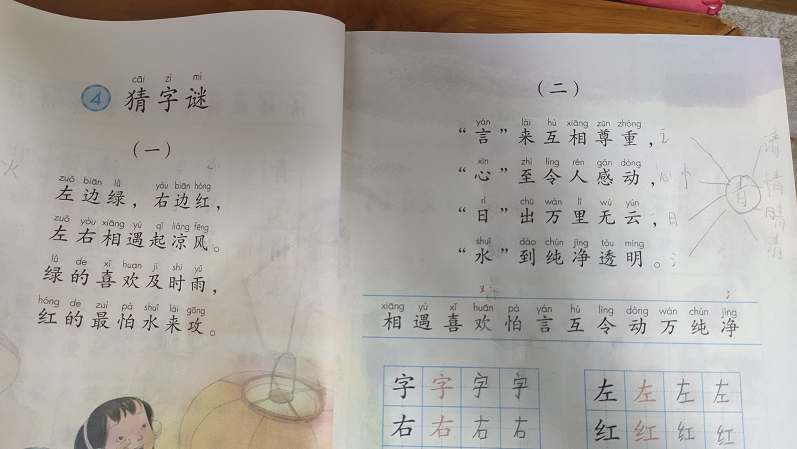 cāi zì mí
4 猜字谜
(一)
zuǒ biān lǜ, yòu biān hóng
左边绿，右边红，
zuǒ yòu xiāng yù qǐ liáng fēng
左右相遇起凉风。
lǜ de xǐ huan jí shí yǔ
绿的喜欢及时雨，
hóng de zuì pà shuǐ lái gōng
红的最怕水来攻。
火
(二)
yán lái hù xiāng zūn zhòng
“言”来互相尊重，
xīn zhì lìng rén gǎn dòng
“心”至令人感动，
rì chū wàn lǐ wú yún
“日”出万里无云，
shuǐ dào chún jìng tòu míng
“水”到纯净透明。
讠
心 忄
日
氵
青
请
情
晴
清
xiāng yù xǐ huān pà yán hù lìng dòng wàn chún jìng
相遇喜欢怕言互令动万纯净
字 字 字 字
右 右 右 右
左 左 左 左
红 红 红 红